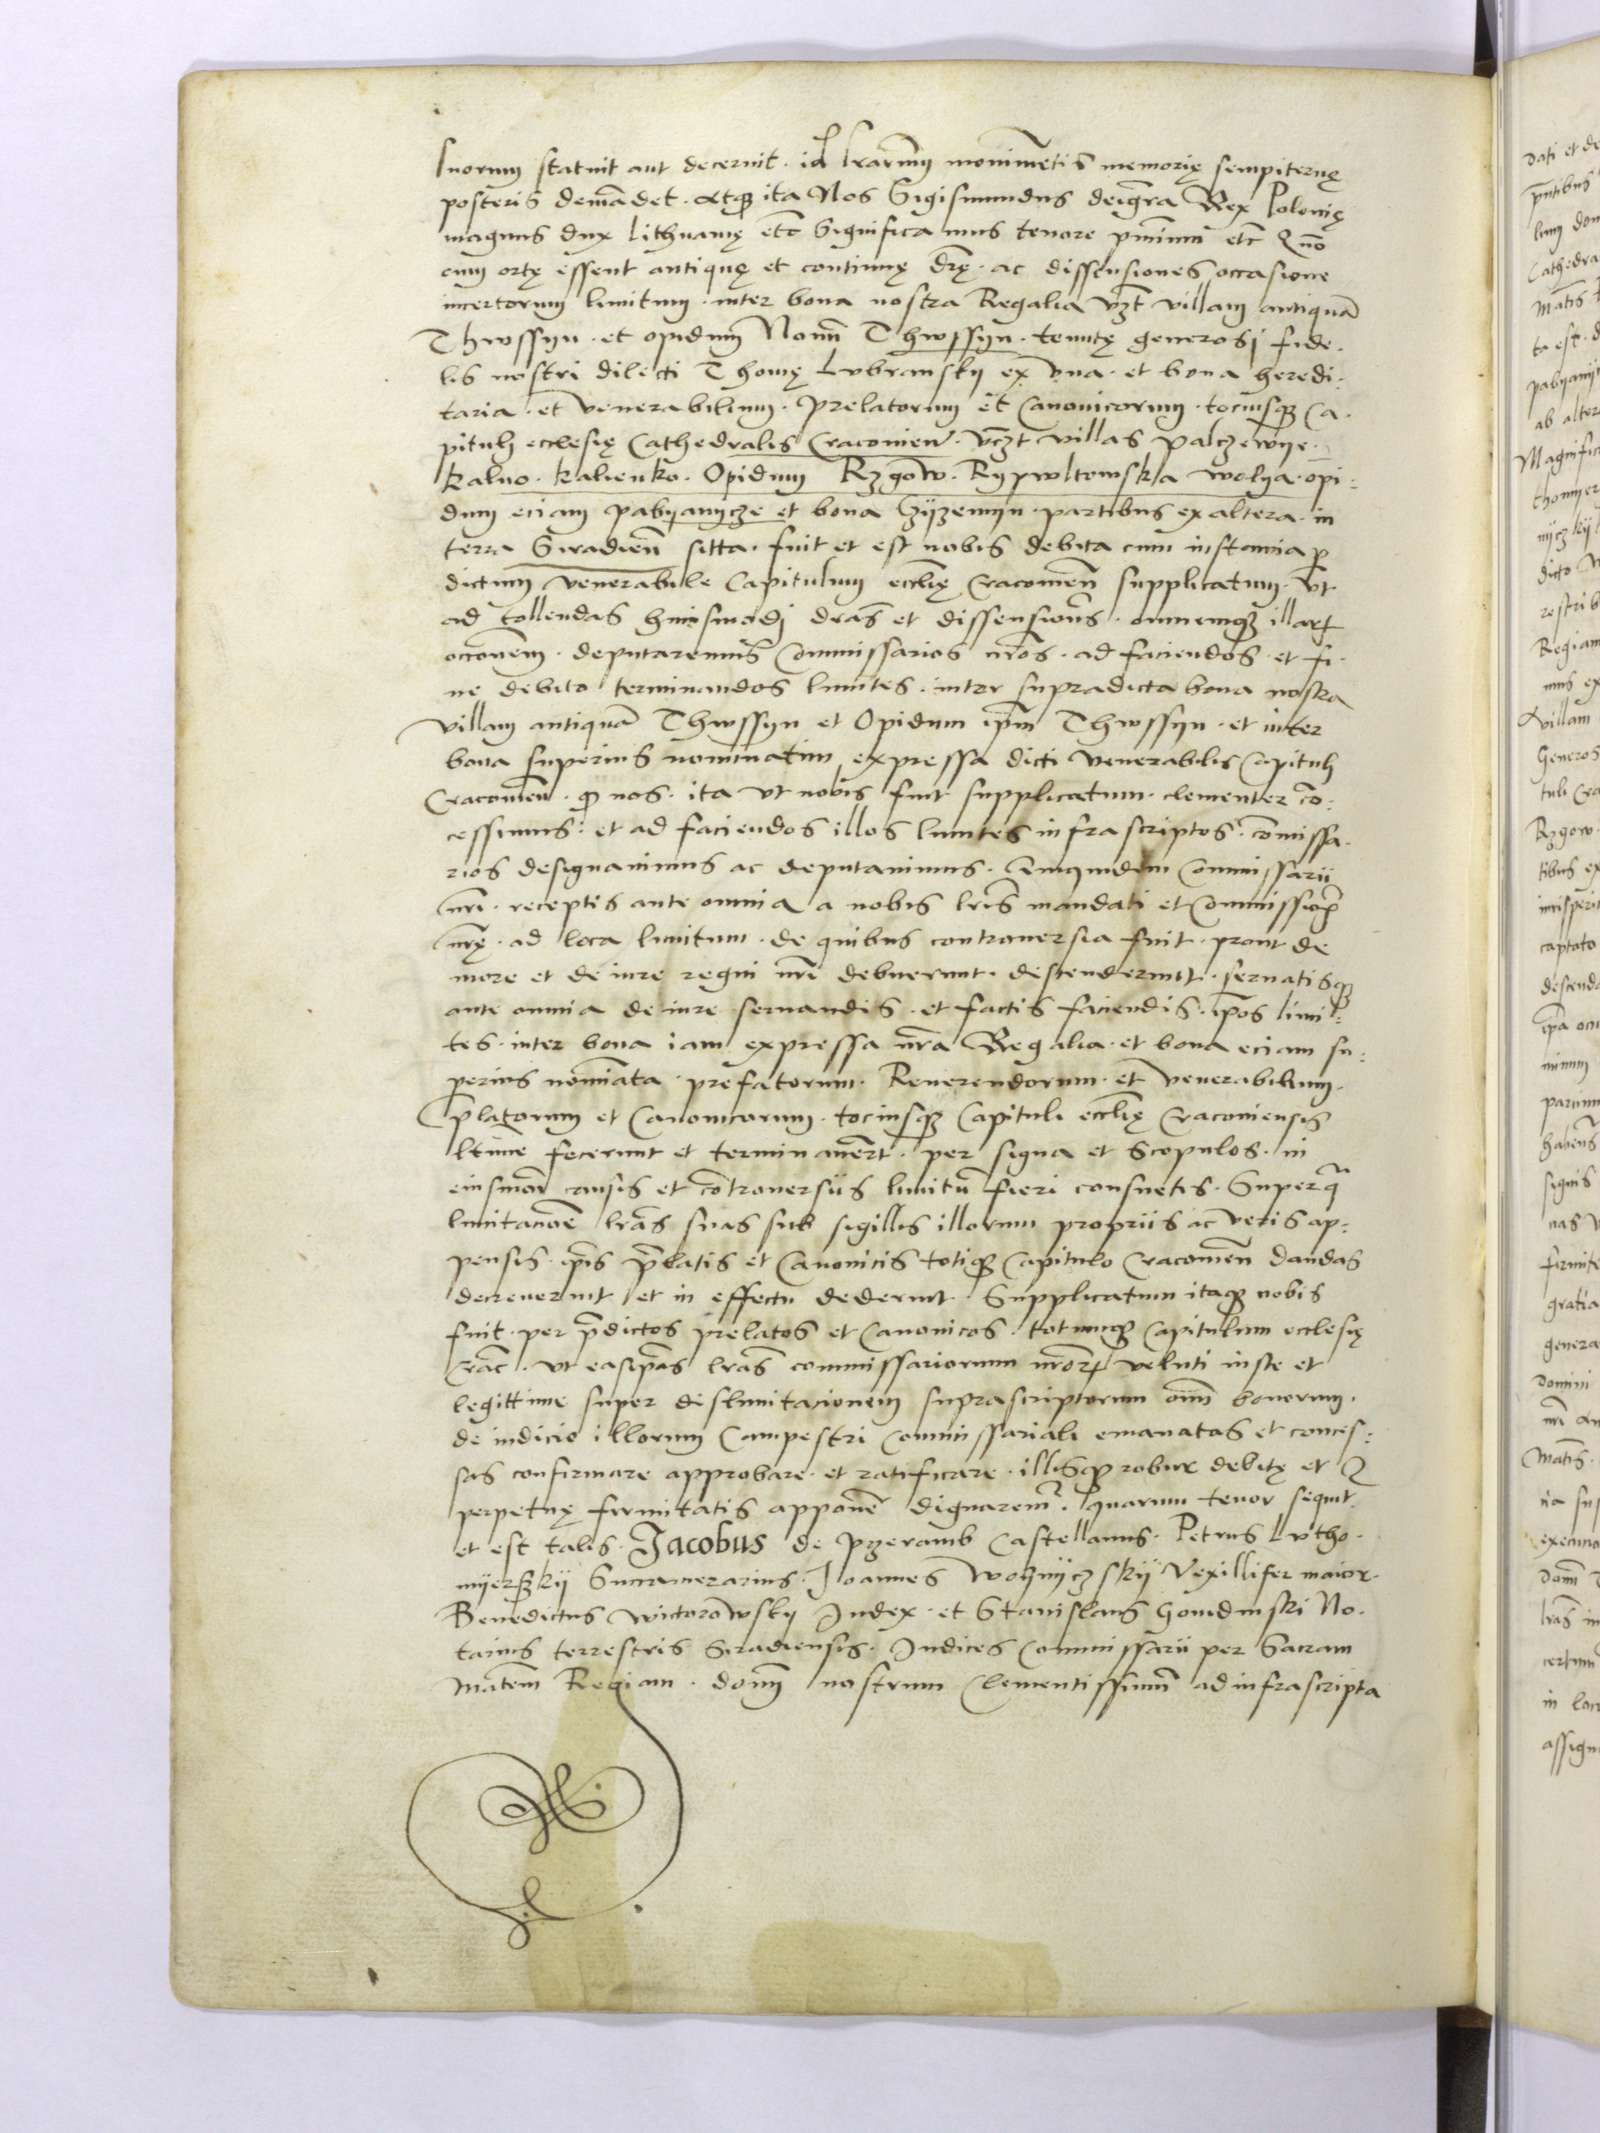 suorum statuit aut decernit · id lrarum monimētis memorię sempiternę
posteris demādet · atq3 ita Nos Sigismundus deigr̄a Rex Polonię
magnus dux Lithuanię etc̄ Significamus tenore pn̄tium etc̄ Quō
cum ortę essent antiquę et continuę dr̄ę · ac dissensiones occasione
incertorum limitum · inter bona nostra Regalia vz̄t villam antiquā
Thwssyn · et opidum Nouū Thwssyn · tenutę generosi fide·
lis nostri dilecti Thomę Lvbransky ex vna · et bona heredi·
taria · et venerabilium · prelatorum et Canonicorum · tociusq3 Ca·
pituli ecclesię Cathedralis Cracovien̄ · vcz̄t villas Palczewye ·
Kalno · Kalienko · Opidum Rzgow · Rypwltowska wolya · opi·
dum eciam pabyanycze et bona Czyzemyn · partibus ex altera · in
terra Siradien̄ sitta · fuit et est nobis debita cum instancia p̄
dictum venerabile Capitulum eccl̄ię Cracovien̄ supplicatum · vt
ad tollendas huiusmodi dr̄as et dissensiones · omnemq3 illarꝝ
occonem · deputaremus Commissarios nr̄os · ad faciendos · et fi·
ne debito terminandos limites · inter supradicta bona nostra
villam antiquā Thwssyn et Opidum ip̄m Thwssyn · et inter
bona superius nominatim expressa dicti venerabilis Capituli
Cracovien̄ · q̄ nos · ita vt nobis fuit supplicatum · clementer cō·
cessimus : et ad faciendos illos limites infrascriptos · com̄issa·
rios designauimus ac deputauimus · Quiquidem Commissarii
nr̄i · receptis ante omnia a nobis lr̄is mandati et Commissionis
nr̄ę · ad loca limitum · de quibus controuersia fuit · prout de
more et de iure regni nr̄i debuerunt · descenderunt · seruatisq3
ante omnia de iure seruandis · et factis faciendis · ip̄os limi·
tes · inter bona iam expressa nr̄a Regalia · et bona eciam su·
perius nominata · prefatorum · Reuerendorum · et venerabilium ·
p̄latorum et Canonicorum · tociusq3 Capituli eccl̄ię Cracouiensis
lt̄ime fecerunt et terminauer̄t · per signa et Scopulos · in
eiusmōi causis et cōtrouersiis limitū fieri consuetis · Superq̄
limitacioē lr̄as suas sub sigillis illorum propriis ac veris ap·
pensis · ip̄is p̄latis et Canonicis totiq3 Capitulo Cracovien̄ dandas
decreuerunt et in effectu dederunt · Supplicatum itaq3 nobis
fuit · per p̄dictos prelatos et Canonicos · totumq3 Capitulum ecclesię
Crac̄ · vt easip̄as lr̄as commissariorum nr̄orꝝ veluti iuste et
legittime super deslimitacionem suprascriptorum oīm bonorum ·
de iudicio illorum Campestri Commissariali emanatas et conces·
sas confirmare approbare · et ratificare · illisq3 robur debitę et
perpetuę firmitatis apponere dignaremr̄ · quarum tenor sequit̄
et est talis · Jacobus de Pzeramb Castellanus · Petrus Lvtho·
myerszkii Succamerarius · Joannes Woznyczskii Vexillifer maior ·
Benedictus Wictorowsky Iudex · et Stanislaus Gomdinski No·
tarius terrestris Siradiensis · Iudices Commissarii per Sacram
Matem̄ Regiam · dom̄ nostrum Clementissimū ad infrascripta